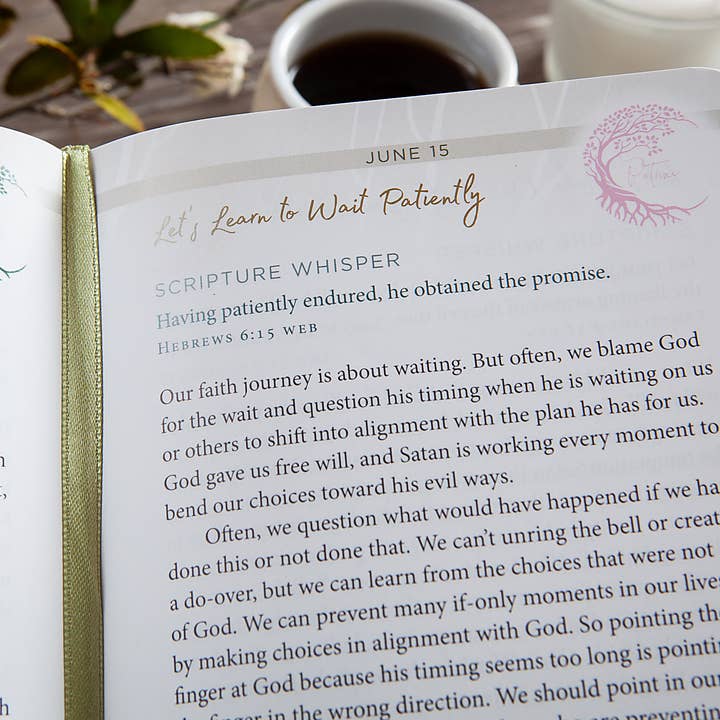 JUNE 15
Let's Learn to Wait Patiently
SCRIPTURE WHISPER
Having patiently endured, he obtained the promise.
HEBREWS 6:15 WEB
Our faith journey is about waiting. But often, we blame God
for the wait and question his timing when he is waiting on us
or others to shift into alignment with the plan he has for us.
God gave us free will, and Satan is working every moment to
bend our choices toward his evil ways.
Often, we question what would have happened if we ha
done this or not done that. We can't unring the bell or creat
a do-over, but we can learn from the choices that were not
of God. We can prevent many if-only moments in our lives
by making choices in alignment with God. So pointing th
finger at God because his timing seems too long is pointi
finger in the wrong direction. We should point in our